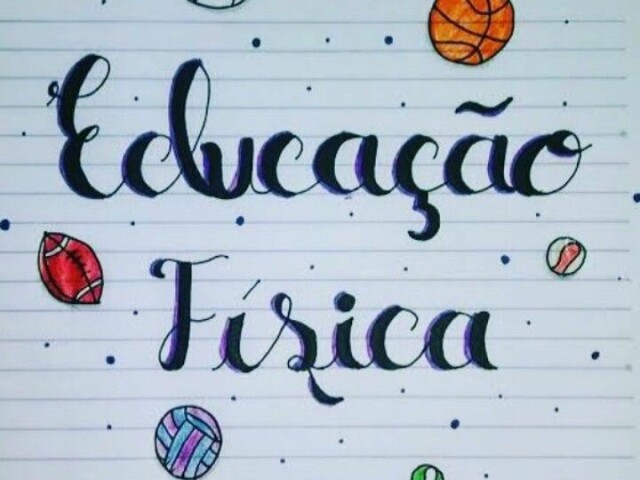 Educação
Física